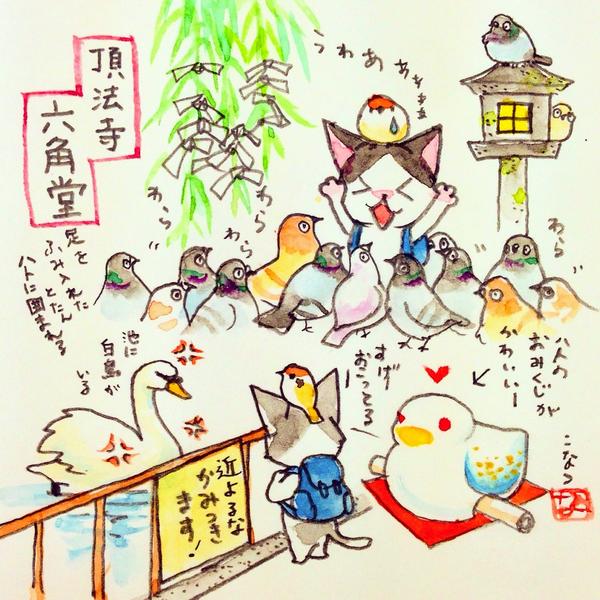 頂法寺
六角堂
うわあぁぁぁぁ
わら
わら
わら
わら
足を
ふみ入れた
とたん
ハトに囲まれる
池に
白鳥が
いる
近よるな
かみつき
ます!
すげ
おこっとる
ハトの
おみくじが
かわいいー
こなつ